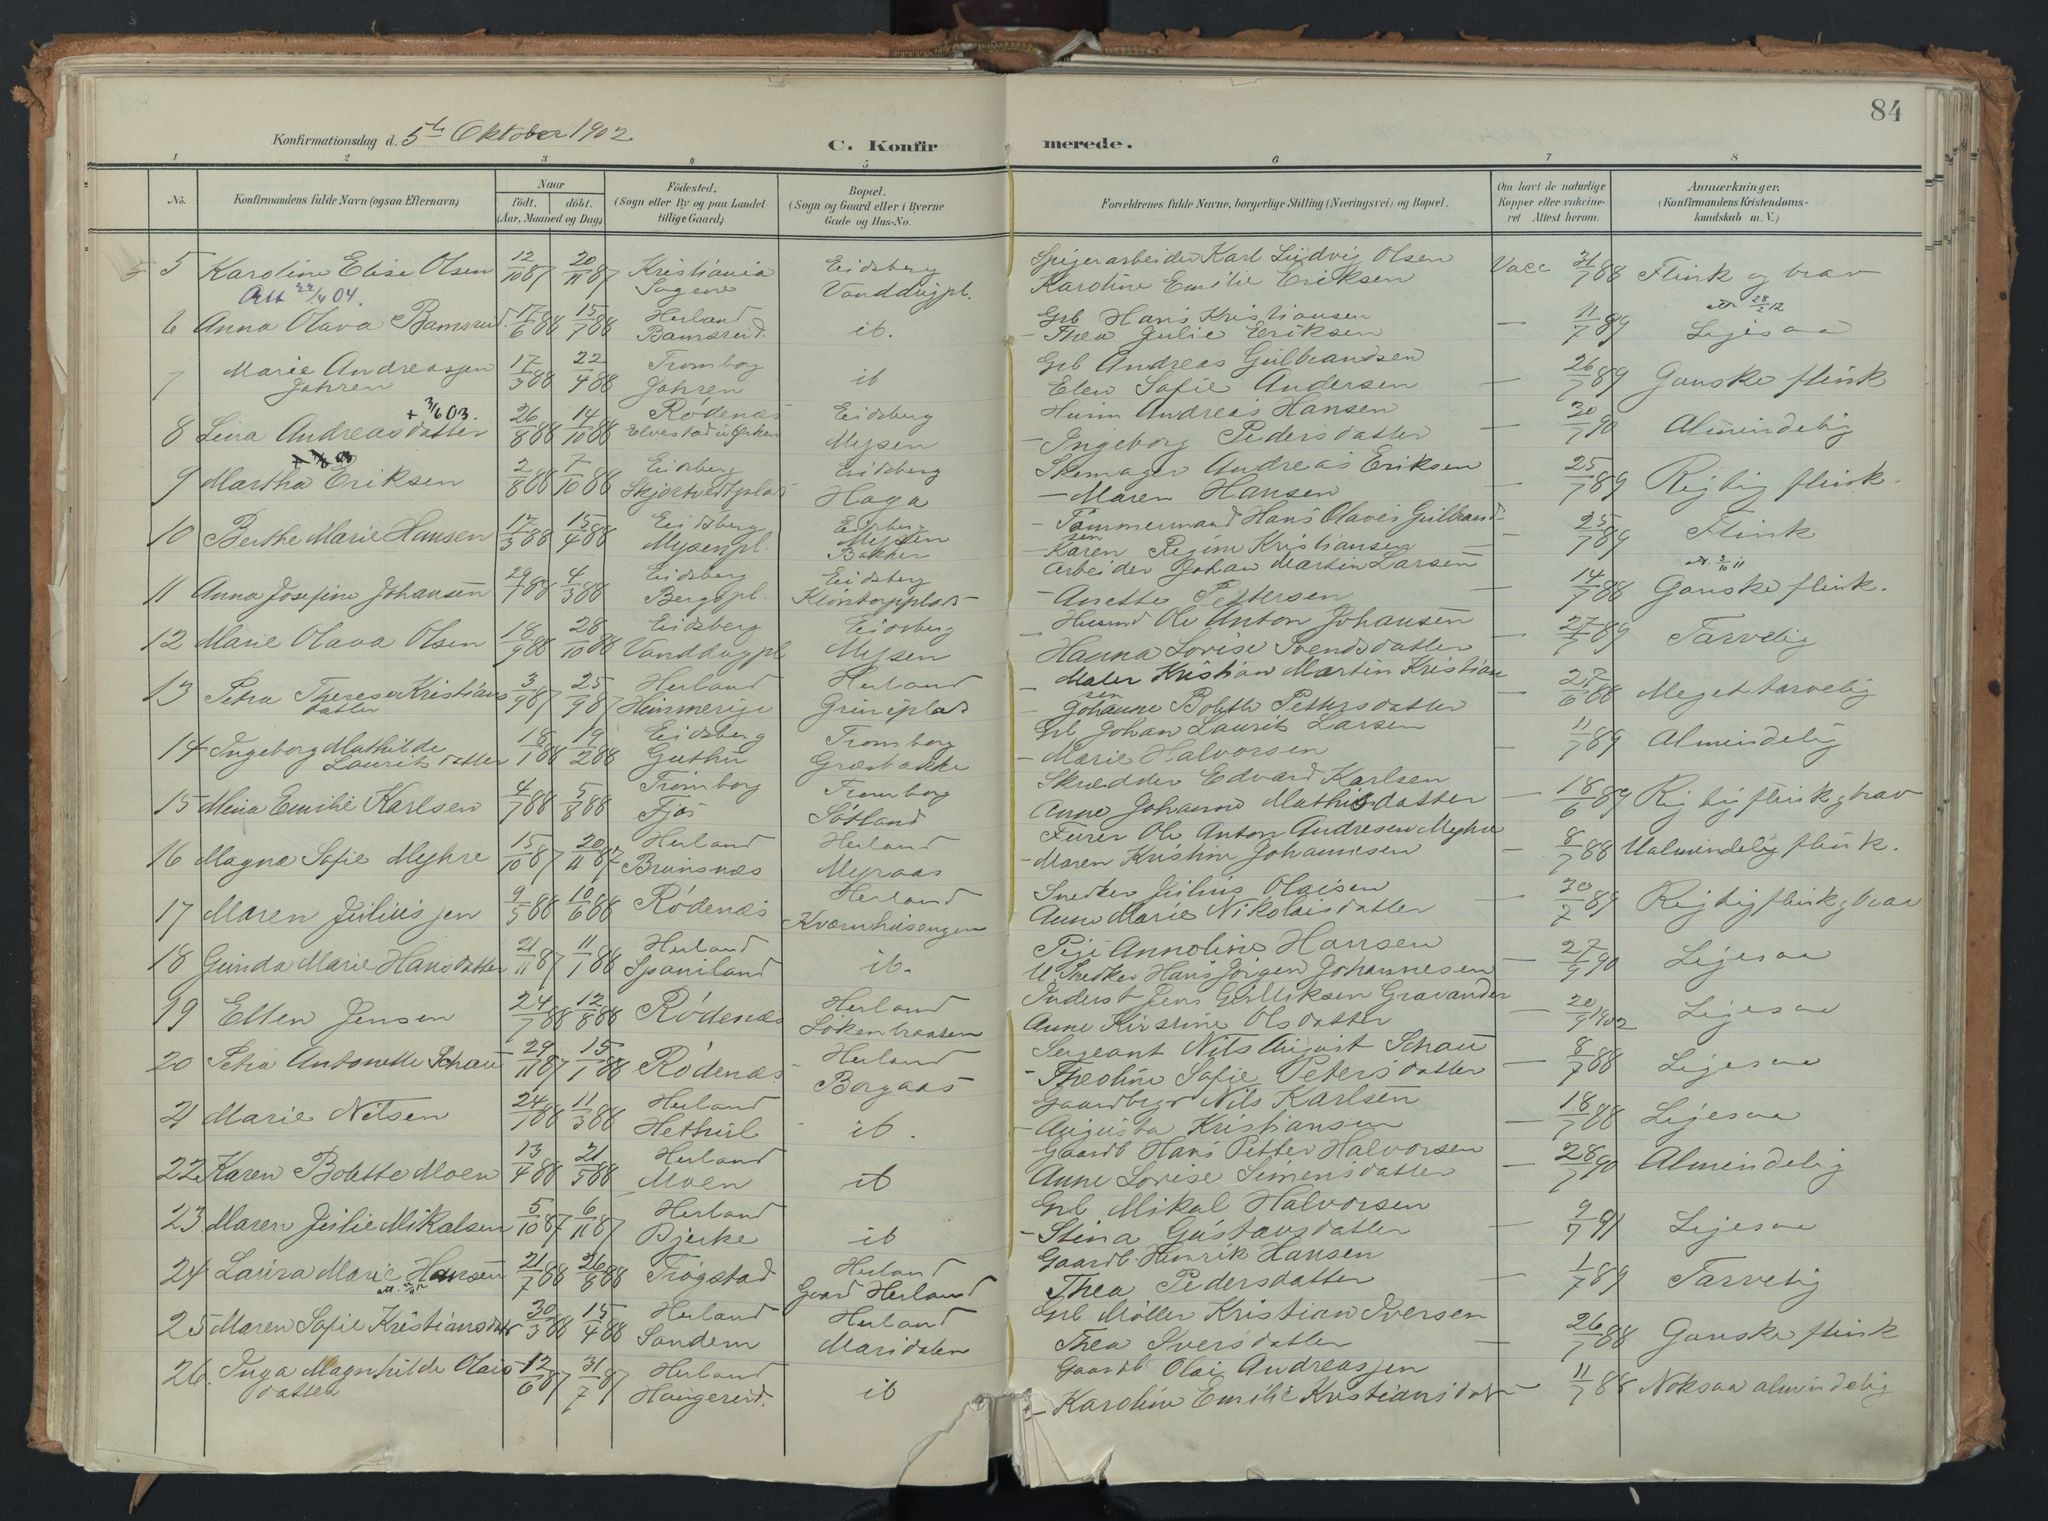 84
Konfirmationsdag d. 5te Oktober 1902
C. Konfirmerede.
1 2 3 4 5 6 7 8
No. Konfirmandens fulde Navn (ogsaa Efternavn) Naar födt. döbt. (Aar, Maaned og Dag) Födested. (Sogn eller By og paa Landet tillige Gaard) Bopæl. (Sogn og Gaard eller i Byerne Gade og Hus-No. Forældrenes fulde Navne, borgerlige Stilling (Næringsvei) og Bopæl. Om havt de naturlige Kopper eller vaccineret Attest herom. Anmærkninger. (Konfirmandens Kristendomskundskab m. V.)
5 Karoline Elise Olsen 12/10 87 20/11 87 Kristiania Sagene Eidsberg Vanddugpl. Spigerarbeider Karl Ludvig Olsen Karoline Emilie Eriksen Vacc 31/7 88 Flink og brav
Att 22/4 04.
6 Anna Olava Bamsrud. 17/6 88 15/7 88 Herland Bamsrud. ib. Grb Hans Kristiansen - Thea Julie Eriksen — 11/7 89 Ligesaa
att. 28/2 12
7 Marie Andreassen Jahren 17/3 88 22/4 88 Tromborg Jahren ib Grb Andreas Gulbrandsen Elen Sofie Andersen — 26/7 89 Ganske flink
8 Lina Andreasdatter + 3/6 03. 26/8 88 14/10 88 Rødenæs Elvestad u Ørken Eidsberg Mysen Husm Andreas Hansen - Ingeborg Pedersdatter — 20/7 90 Almindelig
9 Martha Eriksen 2/8 88 7/10 88 Eidsberg Skjortvedtplads Eidsberg Haga Skomager Andreas Eriksen - Maren Hansen — 25/7 89 Rigtig flink.
10 Berthe Marie Hansen 17/3 88 15/4 88 Eidsberg Mysenpl. Eidsberg Mysen Bakken - Tømmermand Hans Olaves Gulbrandsen - Karen Regine Kristiansen — 25/7 89 Flink
11 Anna Josefine Johansen 29/7 88 4/3 88 Eidsberg Bergspl. Eidsberg Kløntorpplads Arbeider Johan Martin Larsen - Anette Pettersen — 14/7 88 Ganske flink.
att. 2/10 11
12 Marie Olava Olsen 18/9 88 28/10 88 Eidsberg Vanddugpl Eidsberg Mysen - Husmd Ole Anton Johansen Hanna Lovise Svendsdatter — 27/7 89 Tarvelig
13 Petra Therese Kristiansdatter 3/9 87 25/9 87 Herland Heimmerige Herland Grineplads - Maler Kristian Martin Kristiansen - Johanne Bolette Pettersdatter — 25/6 88 Meget tarvelig
14 Ingeborg Mathilde Lauritsdatter 18/1 88 19/2 88 Eidsberg Guthu Tromborg Græsbakke Grb Johan Laurits Larsen - Marie Halvorsen — 11/7 89 Almindelig
15 Mina Emilie Karlsen 4/7 88 5/8 88 Tromborg Fjøs Tromborg Søtland Skrædder Edvard Karlsen Anne Johanne Mathisdatter — 18/6 89 Rigtig flink og brav
16 Magna Sofie Myhre 15/10 87 20/11 87 Herland Brunsnæs Herland Myraas Furer Ole Anton Andresen Myhre - Maren Kristine Johannesen — 8/7 88 Ualmindelig flink.
17 Maren Juliussen 9/5 88 10/6 88 Rødenæs Herland Kværnhusengen Snedker Julius Olaisen Anne Marie Nikolaisdatter — 20/7 89 Rigtig flink og brav
18 Gunda Marie Hansdatter 21/11 87 11/1 88 Herland Spaniland ib. Pige Annoline Hansen U Snedker Hans Jörgen Johannesen — 27/9 90 Ligesaa
19 Ellen Jensen 24/7 88 12/8 88 Rødenæs Herland Løkenbraaten Inderst Jens Gulliksen Gravander Anne Kirstine Olsdatter — 20/9 1902 Ligesaa
20 Petra Antonette Schau 29/11 87 15/1 88 Rødenæs Herland Borgaas Sergeant Nils August Schau - Theoline Sofie Petersdatter — 8/7 88 Ligesaa
21 Marie Nilsen 24/1 88 11/3 88 Herland Hethul ib. Gaardbrgr Nils Karlsen - Augusta Kristiansen — 18/7 88 Ligesaa
22 Karen Bolette Moen 13/4 88 21/5 88 Herland Moen ib Gaardb Hans Petter Halvorsen Anne Lovise Simensdatter — 28/7 90 Almindelig
23 Maren Julie Mikalsen 5/10 87 6/11 87 Herland Bjerke ib Grb Mikal Halvorsen - Stina Gustavsdatter 9/7 91 Ligesaa
24 Laura Marie Hansen 21/7 88 26/8 88 Trøgstad Herland Gaard Herland Gaardb. Henrik Hansen Thea Pedersdatter — 1/7 89 Tarvelig
25 Maren Sofie Kristiansdatr 30/3 88 15/4 88 Herland Sandem Herland Marisdalen Grb Møller Kristian Iversen Thea Iversdatter — 26/7 88 Ganske flink
26. Inga Magnhilde Olaisdatter 12/6 87 31/7 87 Herland Haugereid. ib Gaardb Olai Andreassen - Karoline Emilie Kristiansdatr — 11/7 88 Noksaa almindelig